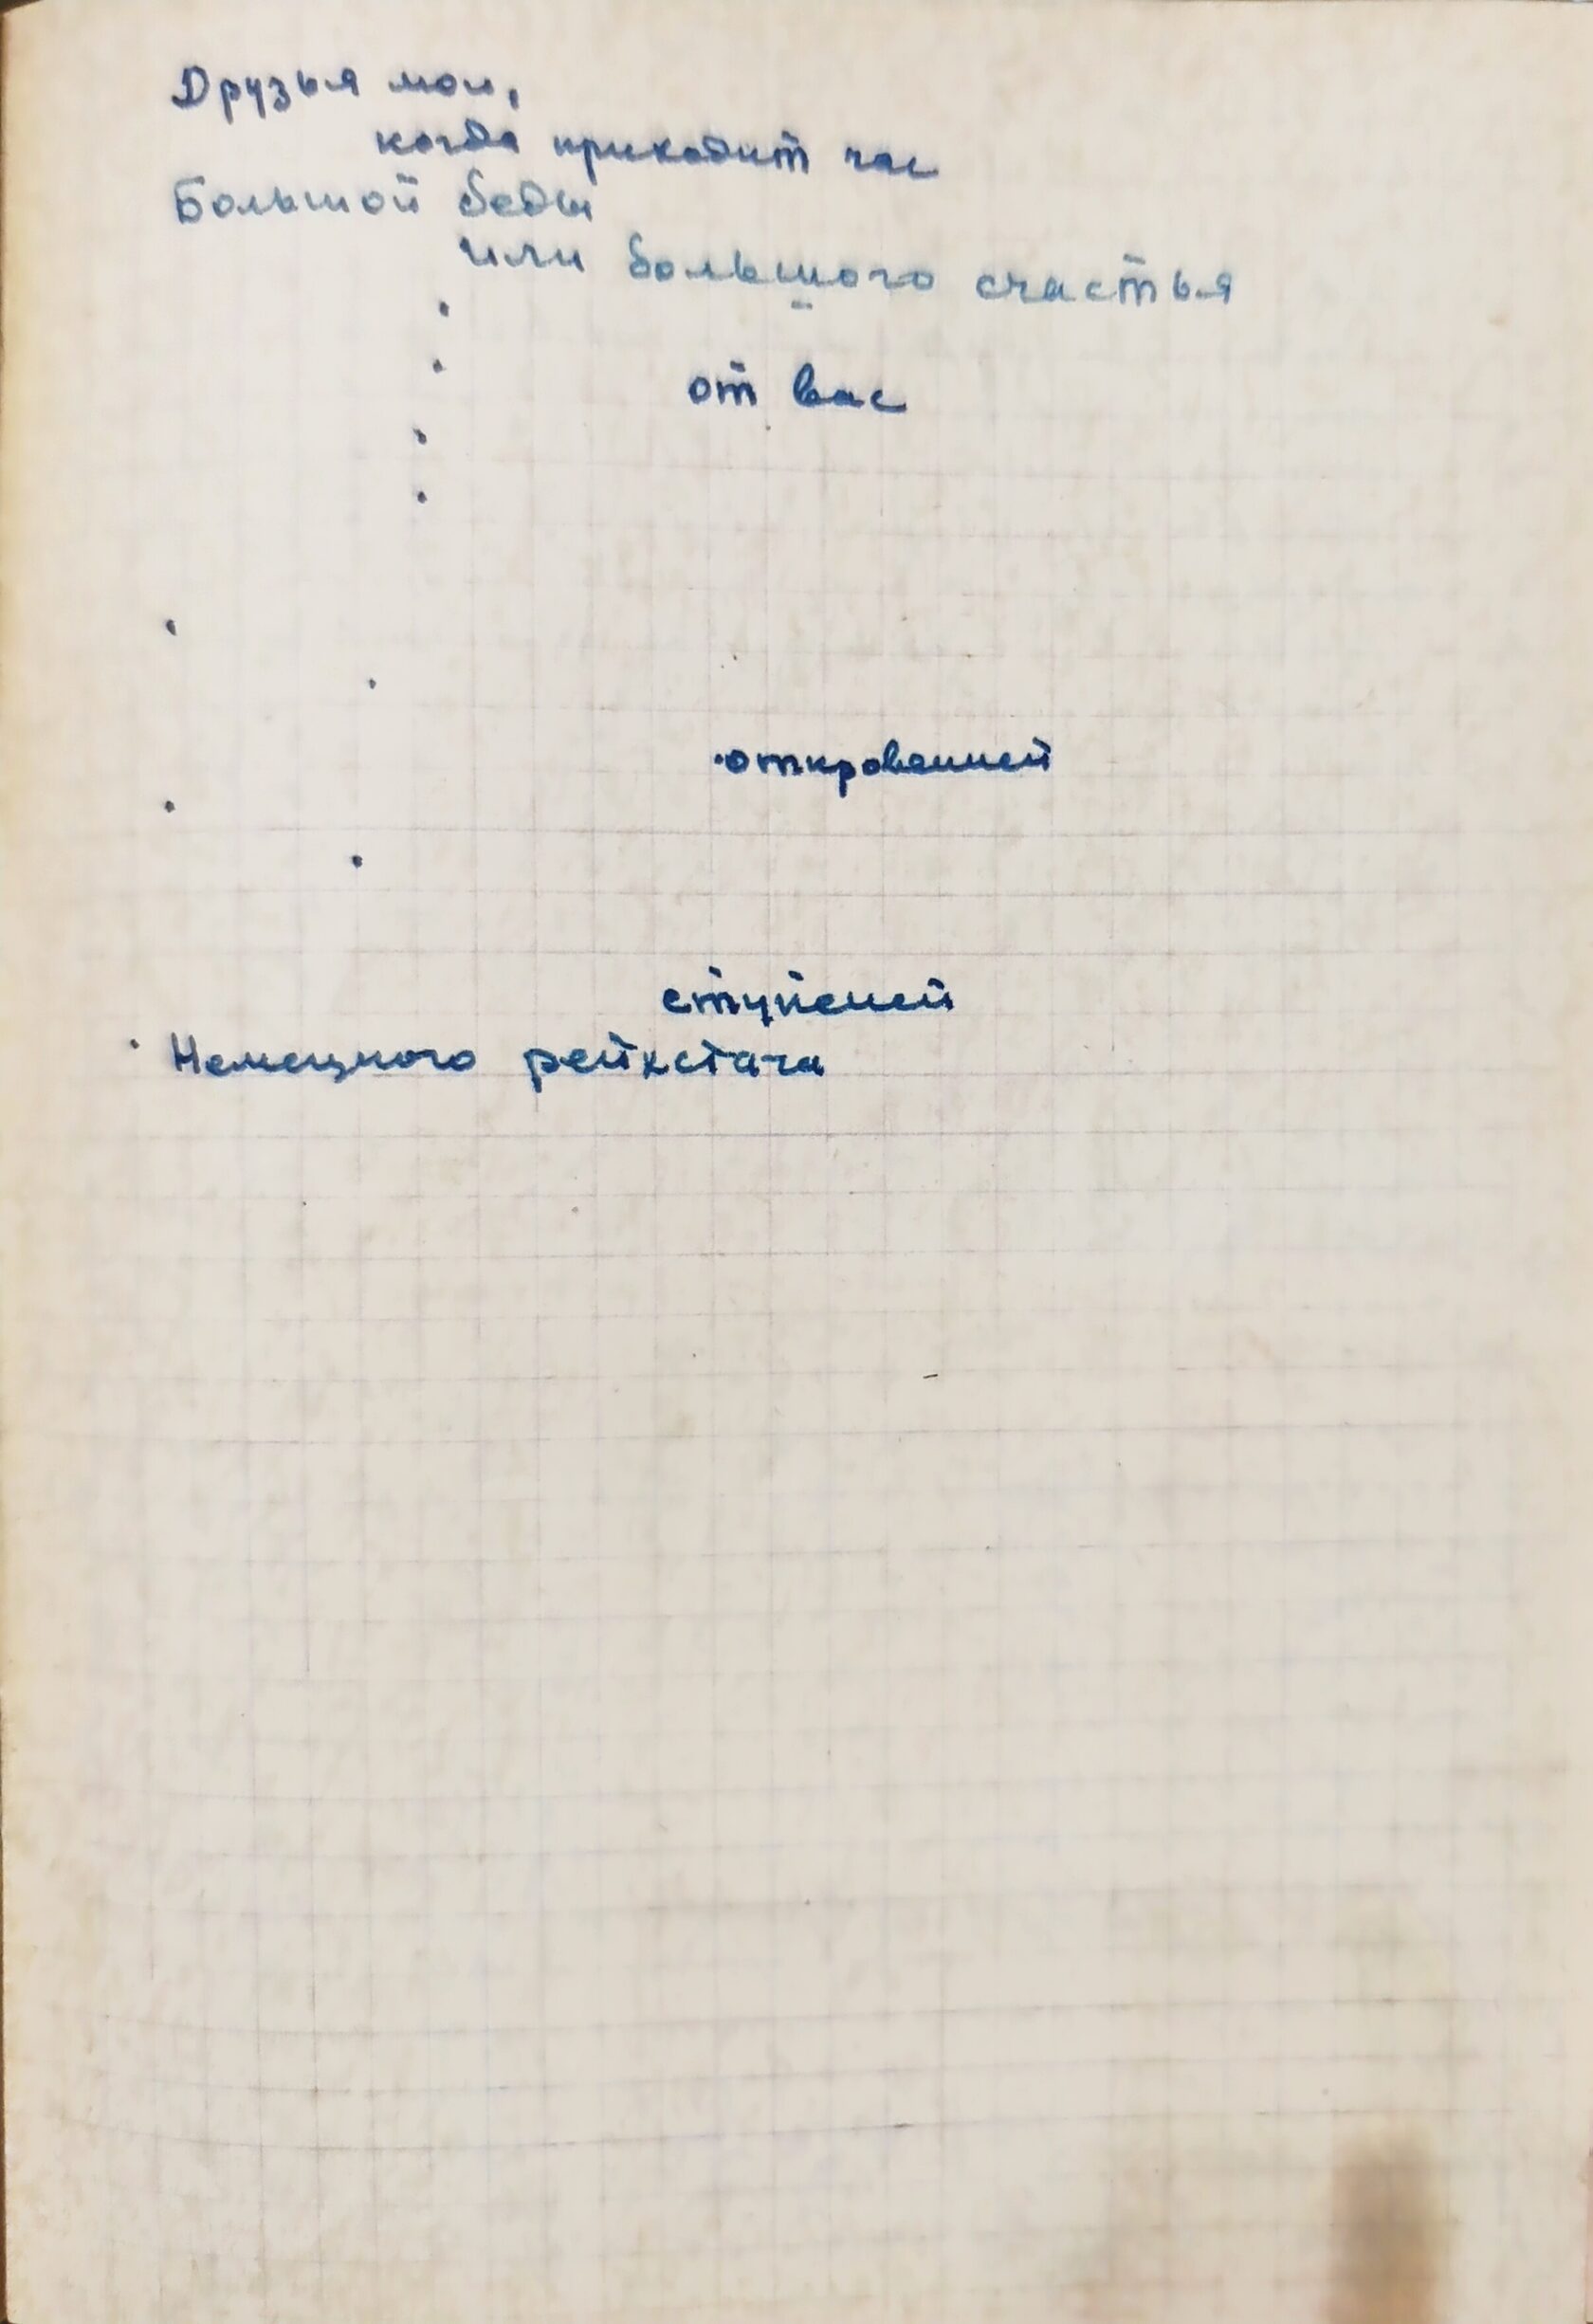 Друзья мои,
когда приходит час
Большой беды
или большого счастья
от вас
откровенней
ступеней
Немецкого рейхстага